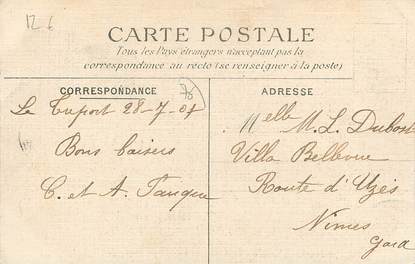 12 6
CARTE POSTALE
Tous les Pays étrangers n'acceptant pas la
correspondance au recto (se renseigner à la poste)
CORRESPONDANCE
Le 28-7-07
Bons baisers
C. et A.
ADRESSE
Melle M. L. Dubost
Villa Bellevue
Route d'Uzès
Nimes
Gard